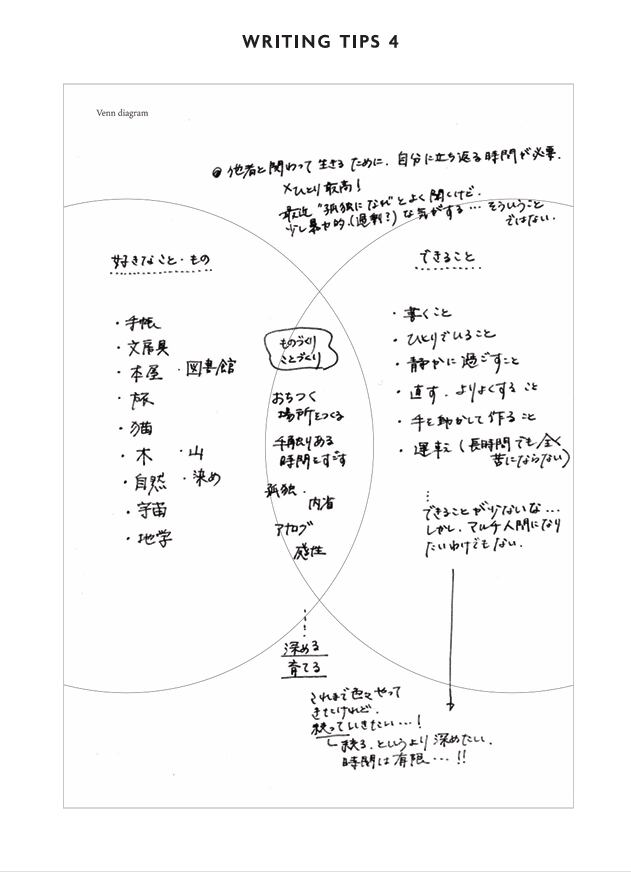 WRITING TIPS 4
Venn diagram
他者と関わって生きるために、自分に立ち返る時間が必要.
×ひとり最高!
最近"孤独になれ"とよく聞くけど、
少し暴力的(過剰?)な気がする… そういうこと
ではない.
好きなこと・もの
・手帳
・文房具
・本屋 ・図書館
・旅
・猫
・木 ・山
・自然 ・染め
・宇宙
・地学
ものづくり
ことづくり
おちつく
場所をつくる
手触りある
時間をすごす
孤独・
内省
アナログ
感性
深める
育てる
できること
・書くこと
・ひとりでいること
・静かに過ごすこと
・直す、よりよくすること
・手を動かして作ること
・運転 (長時間でも全く
苦にならない)
できることが少ないな…
しかし、マルチ人間になり
たいわけでもない.
これまで色々やって
きたけれど、
絞っていきたい…!
絞る、というより深めたい.
時間は有限…!!